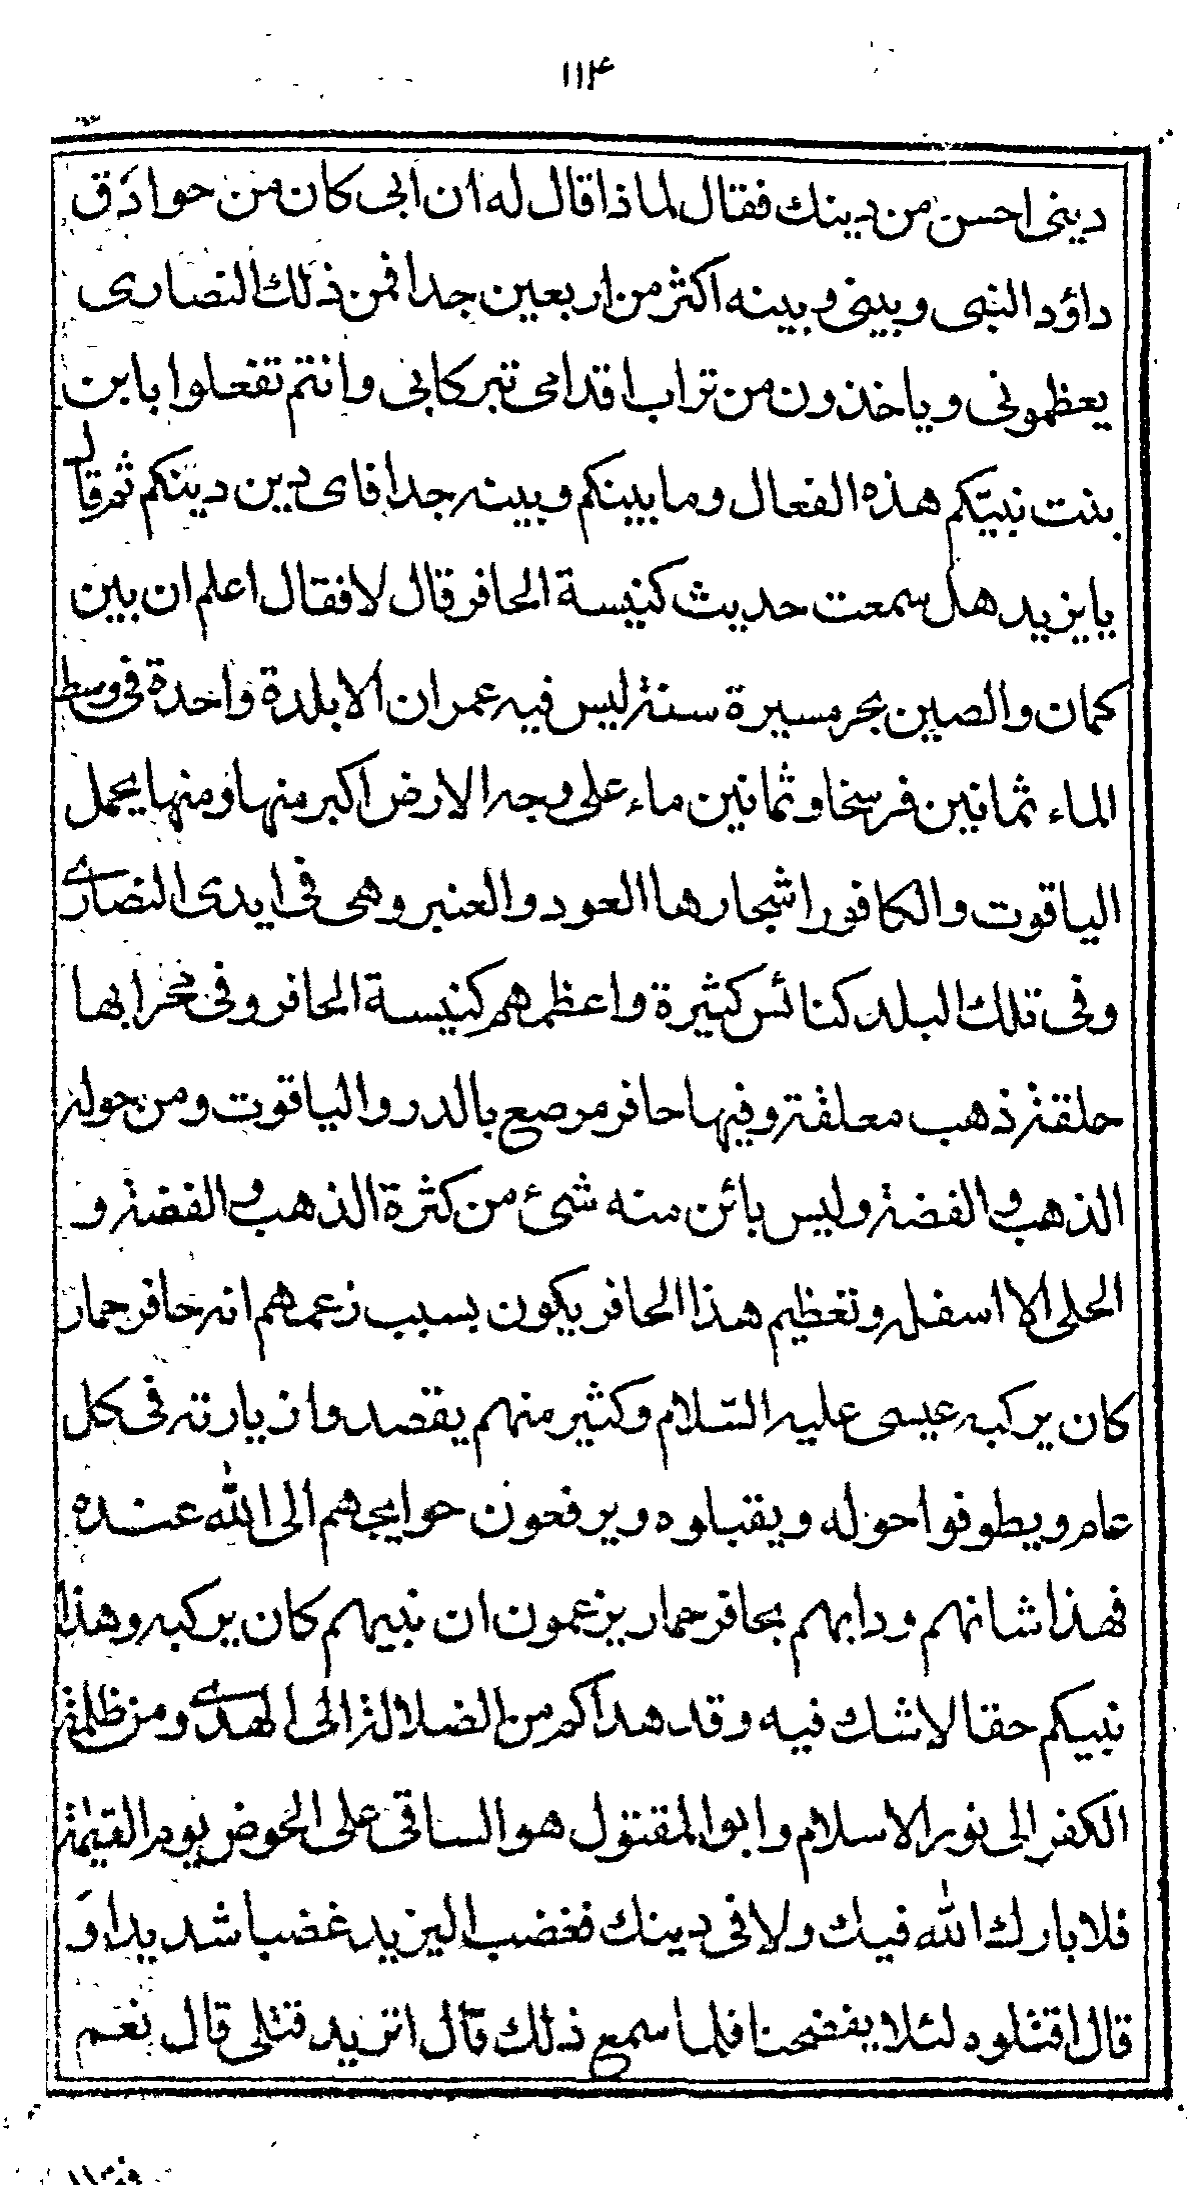 ١١۴
دينى احسن من دينك فقال لماذا قال له ان ابى كان من حوادق
داؤد النبى وبينى وبينه اكثر من اربعين جدا فمن ذلك النصارى
يعظمونى وياخذون من تراب اقدامى تبركابى وانتم تفعلوا بابن
بنت نبيّكم هذه الفعال وما بينكم وبينه جدا فاى دين دينكم ثم قال
يا يزيد هل سمعت حديث كنيسة الحافر قال لا فقال اعلم ان بين
كمان والصين بحر مسيرة سنة ليس فيه عمران الا بلدة واحدة فى وسط
الماء ثمانين فرسخا وثمانين ماء على وجه الارض اكبر منها ومنها يحمل
الياقوت والكافور اشجارها العود والعنبر وهى فى ايدى النصارى
وفى تلك البلد كنائس كثيرة واعظمهم كنيسة الحافر وفى محرابها
حلقة ذهب معلقة وفيها حافر مرصع بالدر والياقوت ومن حوله
الذهب والفضة وليس بائن منه شئ من كثرة الذهب والفضة و
الحلى الا اسفله وتعظيم هذا الحافر يكون بسبب زعمهم انه حافر حمار
كان يركبه عيسى عليه السّلام وكثير منهم يقصدوا زيارته فى كل
عام ويطوفوا حوله ويقبلوه ويرفعون حوايجهم الى الله عنده
فهذا شانهم ودابهم بحافر حمار يزعمون ان نبيهم كان يركبه وهذا
نبيكم حقا لاشك فيه وقد هداكم من الضلالة الى الهدى ومن ظلمة
الكفر الى نور الاسلام وابو المقتول هو الساقى على الحوض يوم القيمة
فلا بارك الله فيك ولا فى دينك فغضب اليزيد غضبا شديدا و
قال اقتلوه لئلا يفضحنا فلما سمع ذلك قال اتريد قتلى قال نعم